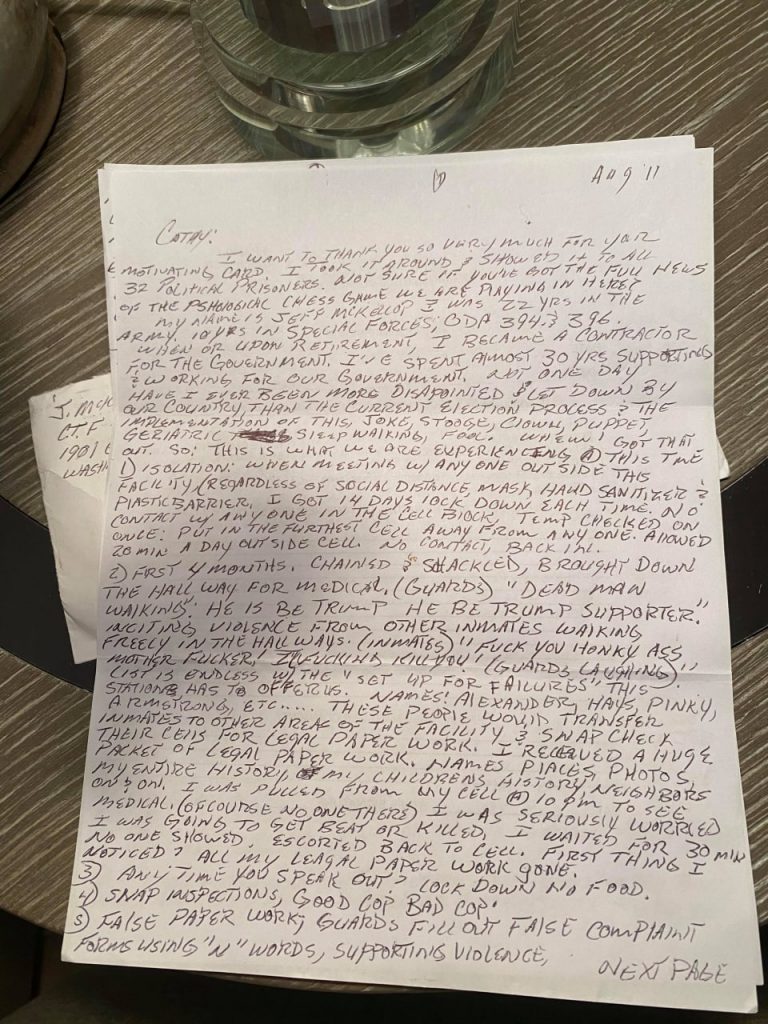 Aug 11
Cathy:
I WANT TO THANK YOU SO VERY MUCH FOR YOUR
MOTIVATING CARD. I TOOK IT AROUND & SHOWED IT TO ALL
32 POLITICAL PRISONERS. NOT SURE IF YOU'VE GOT THE FULL NEWS
OF THE PSHOLOGICAL CHESS GAME WE ARE PLAYING IN HERE?
MY NAME IS JEFF MCKELLOP & WAS 22 YRS IN THE
ARMY. 10 YRS IN SPECIAL FORCES, ODA 394 & 396.
WHEN OR UPON RETIREMENT, I BECAME A CONTRACTOR
FOR THE GOVERNMENT. I'VE SPENT ALMOST 30 YRS SUPPORTING
& WORKING FOR OUR GOVERNMENT. NOT ONE DAY
HAVE I EVER BEEN MORE DISAPOINTED & LET DOWN BY
OUR COUNTRY, THAN THE CURRENT ELECTION PROCESS & THE
IMPLEMENTATION OF THIS, JOKE, STOOGE, CLOWN, PUPPET,
GERIATRIC SLEEP WALKING, FOOL. WHEW! GOT THAT
OUT. SO: THIS IS WHAT WE ARE EXPERIENCING @ THIS TME
1) ISOLATION: WHEN MEETING W/ ANY ONE OUTSIDE THIS
FACILITY, (REGARDLESS OF SOCIAL DISTANCE, MASK, HAND SANITIZER &
PLASTIC BARRIER, I GOT 14 DAYS LOCK DOWN EACH TIME. NO
CONTACT W/ ANY ONE IN THE CELL BLOCK, TEMP CHECKED ON
ONCE: PUT IN THE FURTHEST CELL AWAY FROM ANY ONE. ALLOWED
20 MIN A DAY OUTSIDE CELL. NO CONTACT, BACK IN.
2) FIRST 4 MONTHS. CHAINED & SHACKLED, BROUGHT DOWN
THE HALL WAY FOR MEDICAL. (GUARDS) "DEAD MAN
WALKING. HE IS BE TRUMP HE BE TRUMP SUPPORTER."
INCITING VIOLENCE FROM OTHER INMATES WALKING
FREELY IN THE HALL WAYS. (INMATES) "FUCK YOU HONKY ASS
MOTHER FUCKER, I'LL FUCKING KILL YOU!" (GUARDS LAUGHING)"
LIST IS ENDLESS W/ THE "SET UP FOR FAILURES" THIS
STATION HAS TO OFFER US. NAMES! ALEXANDER, HAYS, PINKY,
ARMSTRONG, ETC..... THESE PEOPLE WOULD TRANSFER
INMATES TO OTHER AREAS OF THE FACILITY & SNAP CHECK
THEIR CELLS FOR LEGAL PAPER WORK. I RECEIVED A HUGE
PACKET OF LEGAL PAPER WORK. NAMES PLACES, PHOTOS,
MY ENTIRE HISTORY, MY CHILDRENS HISTORY, NEIGHBORS
ON & ON. I WAS PULLED FROM MY CELL @ 10 PM TO SEE
MEDICAL, (OFCOURSE NO ONE THERE) I WAS SERIOUSLY WORRIED
I WAS GOING TO GET BEAT OR KILLED. I WAITED FOR 30 MIN
NO ONE SHOWED. ESCORTED BACK TO CELL. FIRST THING I
NOTICED? ALL MY LEAGAL PAPER WORK GONE.
3) ANY TIME YOU SPEAK OUT? LOCK DOWN NO FOOD.
4) SNAP INSPECTIONS, GOOD COP BAD COP.
5) FALSE PAPER WORK; GUARDS FILL OUT FALSE COMPLAINT
FORMS USING "N" WORDS, SUPPORTING VIOLENCE,
NEXT PAGE
J. McK
C.T.F
1901
WASHI